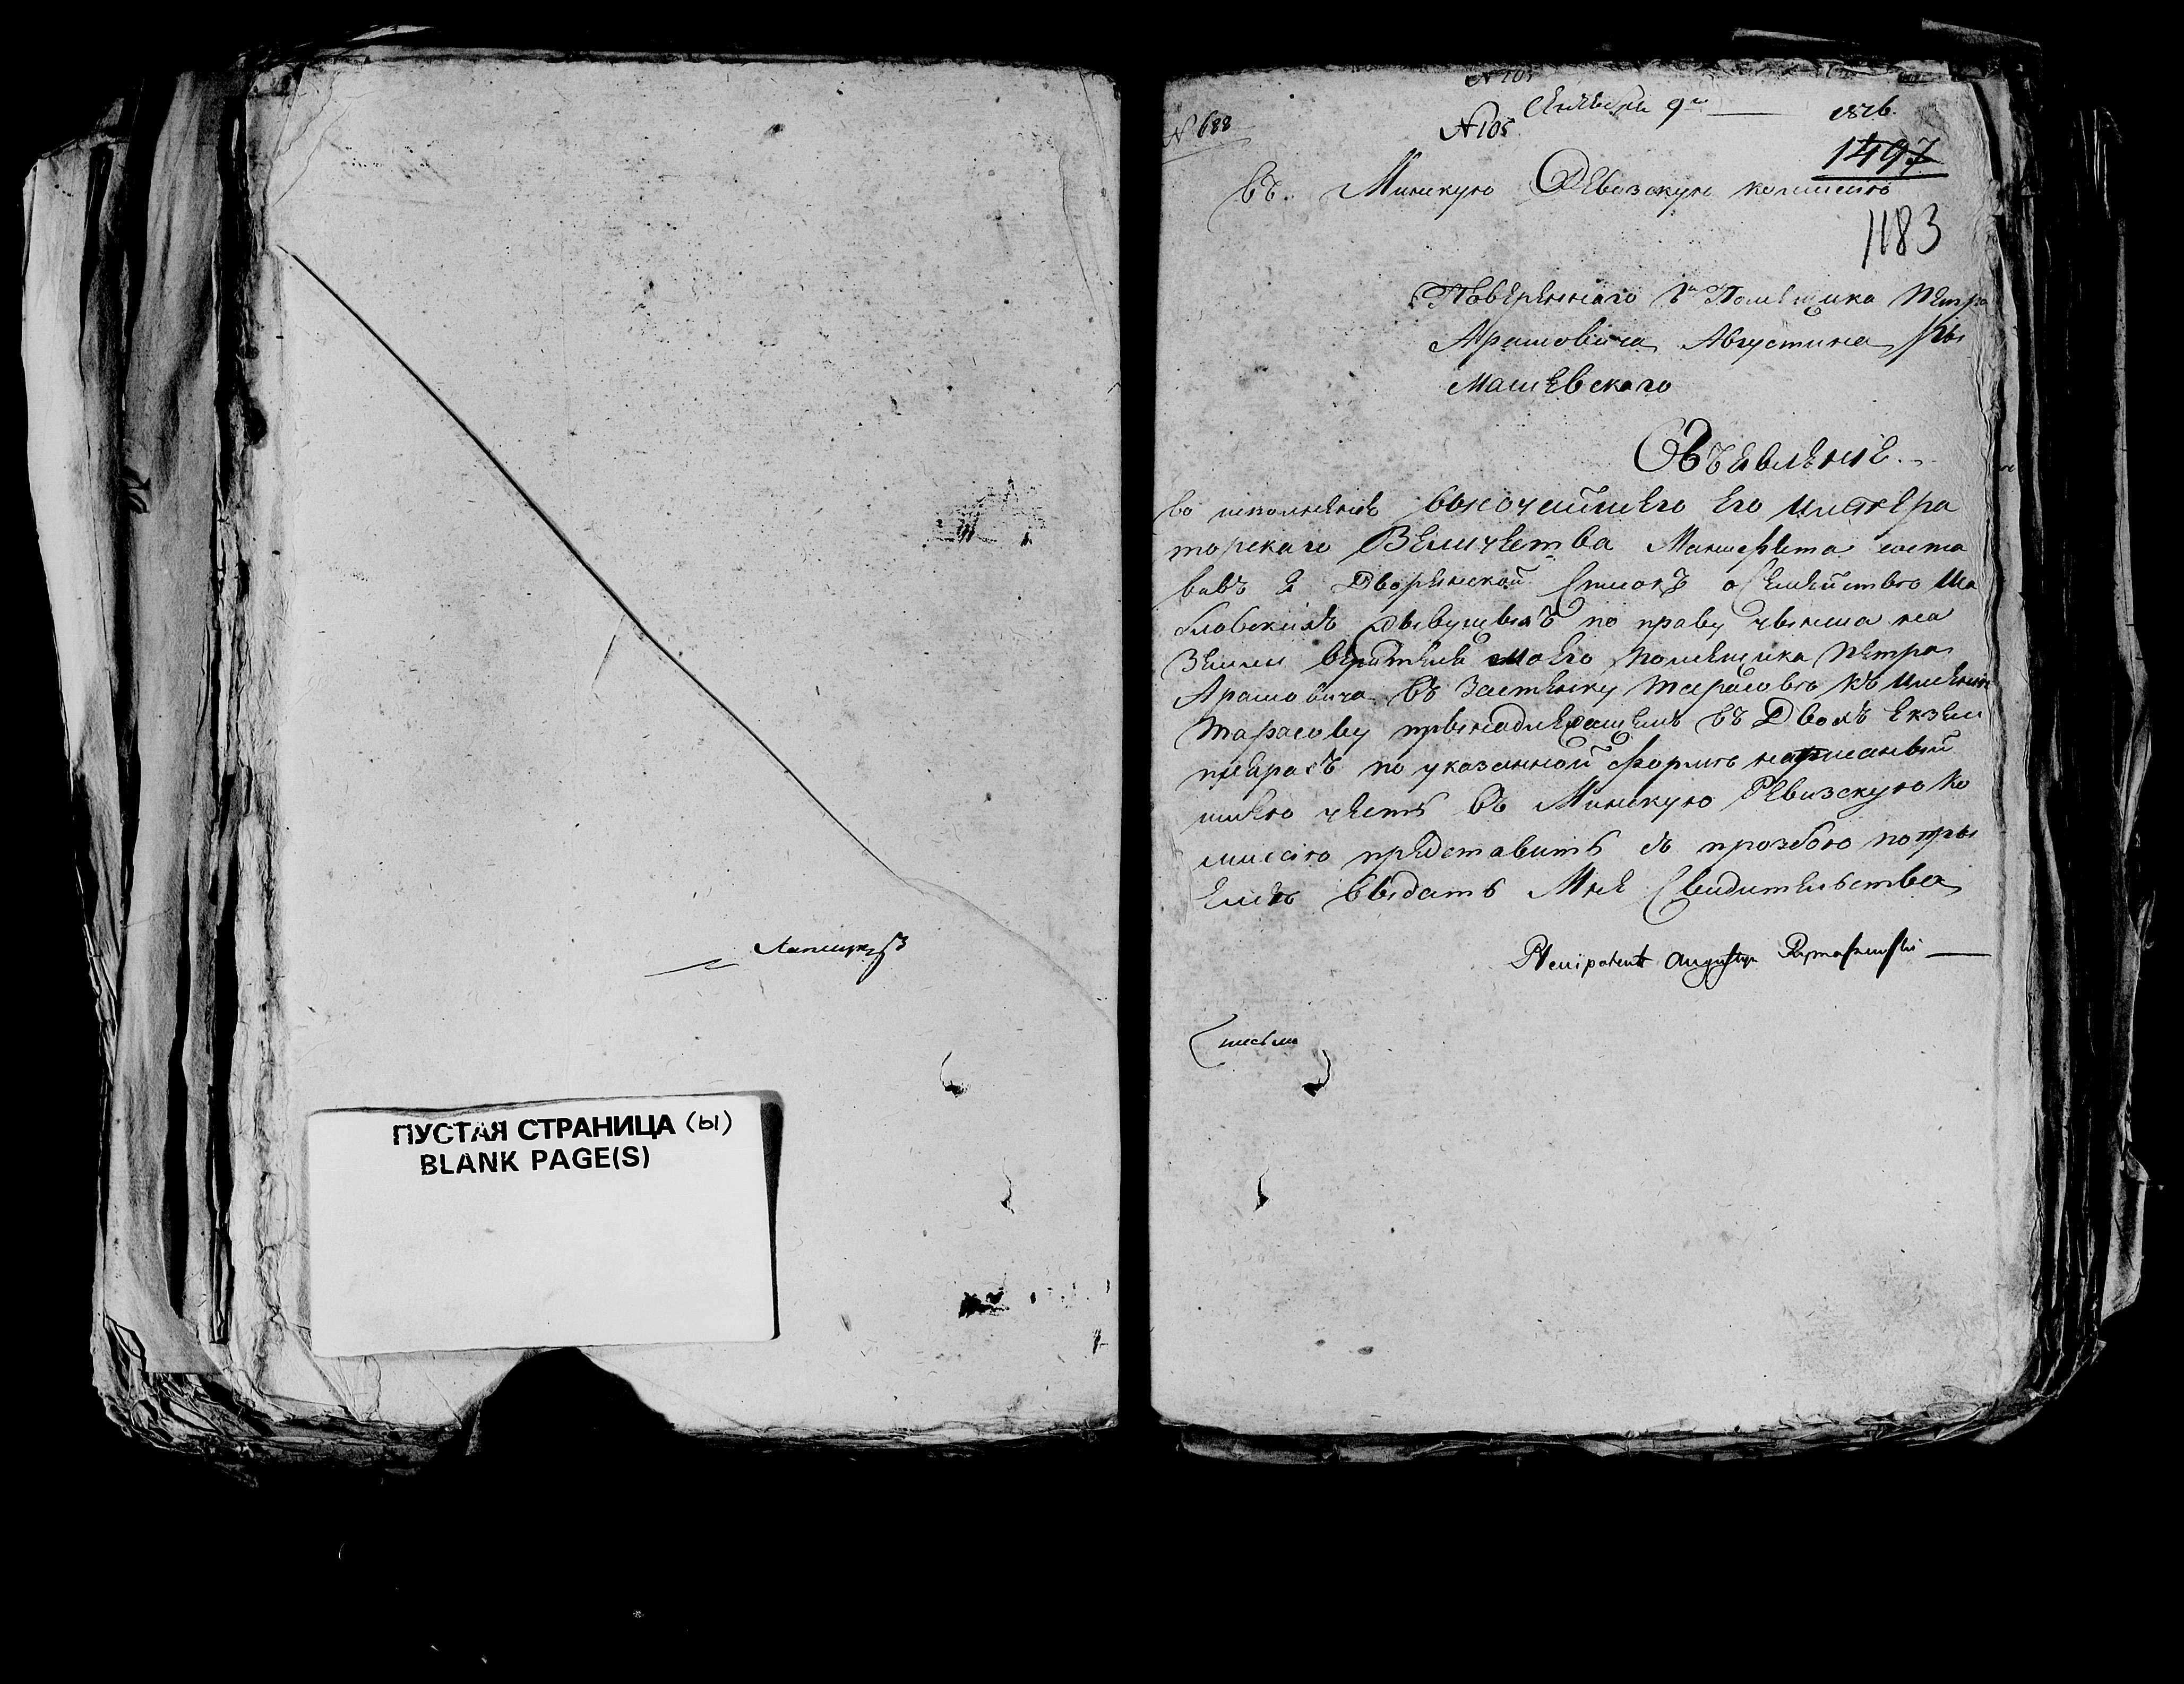 Лапицкій
ПУСТАЯ СТРАНИЦА (Ы)
BLANK PAGE(S)
N 105
N 688
N 105
Сентября 9го 1816
1497
Въ Минскую Ревизскую комиссію
1183
Повѣреннаго Помещика Петра
Арашовича Августина Ры
машевскаго
Обѣявленіе
во исполненіе высочайшего Его Импера
торскаго Величества Манифеста соста
вивъ Дворянской Списокъ о Семействѣ
словскихъ по праву чынша на
Земли вѣрителя моего помещика Петра
Арашовича въ Застенку Тарасовѣ къ имению
Тарасову прынадлежащемъ въ Двохъ екзем
плярахъ по указанной формѣ написаный
имѣю честь въ Минскую Ревизскую Ко
миссію представить съ прозбою по пры
емѣ выдать Мне Свидительства
Plenipotent Augustyn Rymaszewski